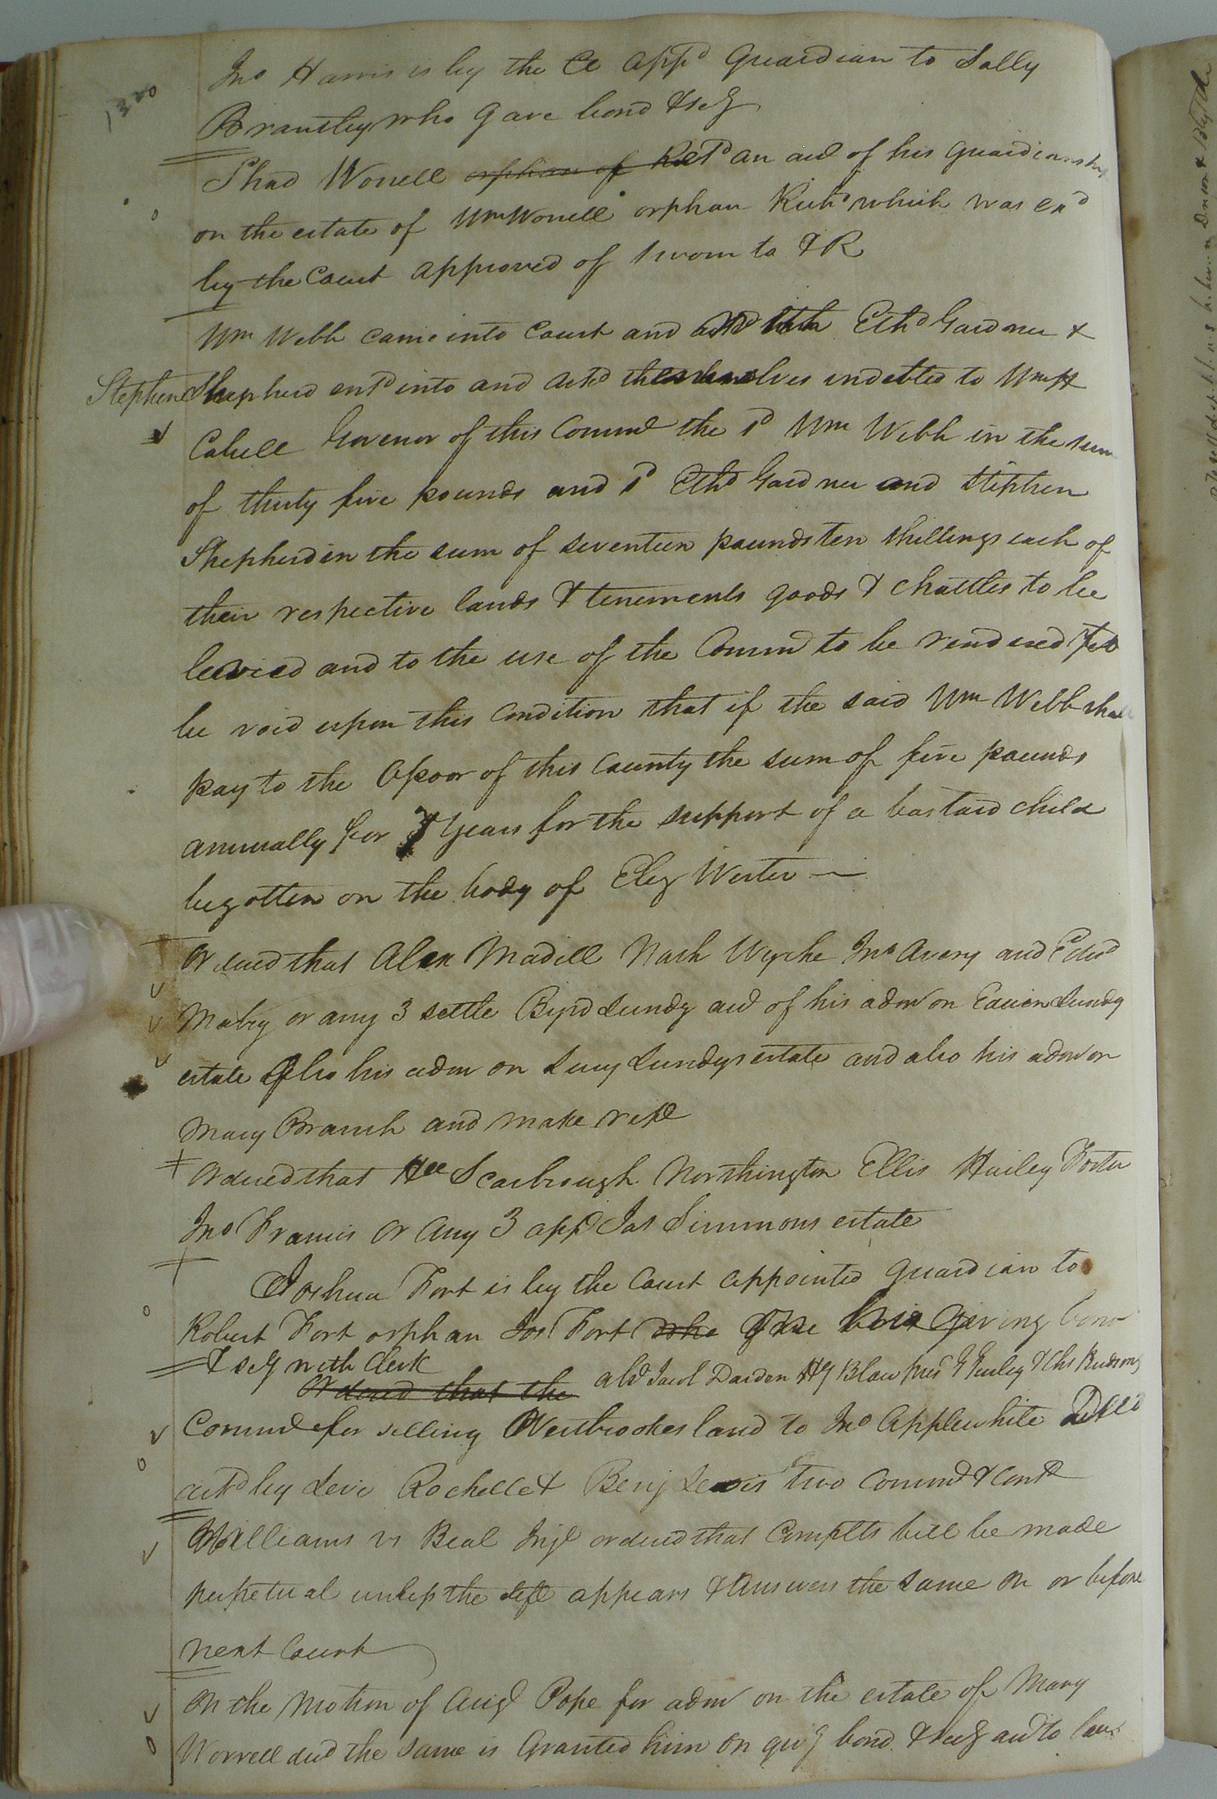 Jno Harris is by the Ct appd Guardian to Sally
Brantley who gave bond & secy
Shad Worrell orphan of Retd an acct of his guardianship
on the estate of Wm Worrell orphan Richd which was exd
by the Court approved of sworn to & R
Wm Webb came into Court and and with Ethd Gardner &
Stephen Shepherd entd into and ackd themselves indebted to Wm H
Cabell Govenor of this Commd the sd Wm Webb in the sum
of thirty five pounds and sd Ethd Gardner and Stephen
Shepherd in the sum of seventeen pounds ten shillings each of
their respective lands & tenements goods & chattles to be
levied and to the use of the Commd to be rendered yet to
be void upon this condition that if the said Wm Webb shall
pay to the Opoor of this County the sum of five pounds
annually for 7 years for the support of a bastard child
begotten on the body of Eliz Wester
Ordered that Alex Madill Nash Wyche Jno Avery and Edwd
Mabry or any 3 settle Byrd Lundy acct of his admr on Lundy
estate Also his admr on Lucy Lundys estate and also his admr on
Mary Branch and make rept
Ordered that Scarbrough Northington Ellis Hailey Foster
Jno Francis or any 3 appd Jas Simmons estate
Joshua Fort is by the Court appointed guardian to
Robert Fort orphan Jos Fort who giving bond
& secy with Clerk
Ordered that the Jacob Darden Hy Blow
Commd for selling Westbrookes land to Jno Applewhite Deed
ackd by Levi Rochelle & Benj Lewis two Commd & Contd
Williams vs Beal Injd ordered that Complts bill be made
perpetual unless the deft appears & Answers the same on or before
next Court
On the Motion of Augd Pope for admr on the estate of Mary
Worrell decd the same is Granted him on givg bond & secy accd to law